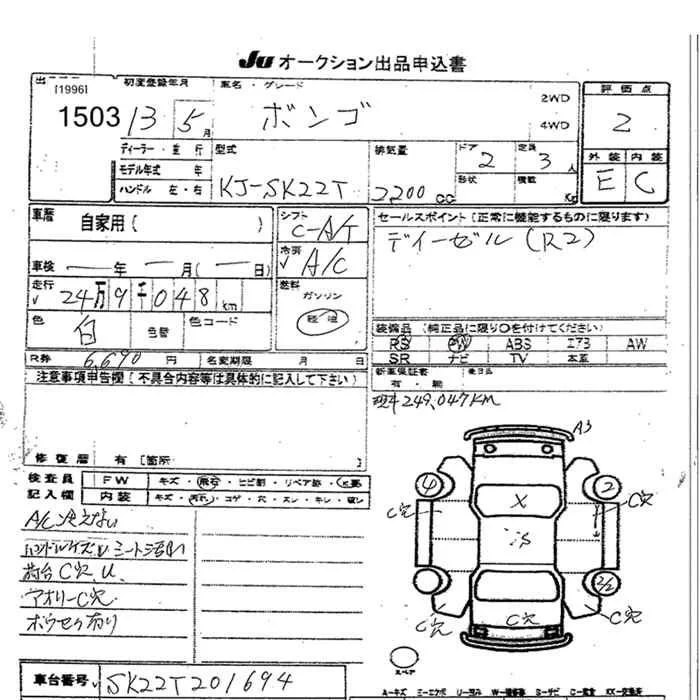 Ju オークション出品申込書
出 [1996]
1503
初度登録年月
13 5月
車名・グレード
ボンゴ
2WD
4WD
評価点
2
外装 内装
E C
ディーラー・並行
モデル年式 年
ハンドル 左・右
型式
KJ-SK22T
排気量
2200 cc
ドア 2
定員 3人
形状
積載 Kg
車歴 自家用( )
シフト C-A/T
冷房 A/C
燃料 ガソリン
軽油
車検 年 月( 日)
走行 24万9千048km
色 白 色替 色コード
セールスポイント(正常に機能するものに限ります)
ディーゼル(R2)
装備品 (純正品に限り○を付けてください)
PS PW ABS エアB AW
SR ナビ TV 本革
新車保証書 後日品
有・無
R券 6,690円 名変期限 月 日
注意事項申告欄(不具合内容等は具体的に記入して下さい)
現車249,047KM
修復歴 有 [箇所
検査員 記入欄
FW キズ・飛石・ヒビ割・リペア跡・
内装 キズ・汚れ・コゲ・穴・スレ・キレ・破レ
A/C冷えない
ハンドルキズU シート汚れ
荷台C穴U
アオリーC穴
ボウセイ有り
A3
4 2
C穴 X C穴
S
2/2
C穴 C穴 C穴
スペア
車台番号 SK22T201694
A-キズ E-エクボ U-ヨーヨム W-補修跡 S-サビ C-腐食 XX-交換済